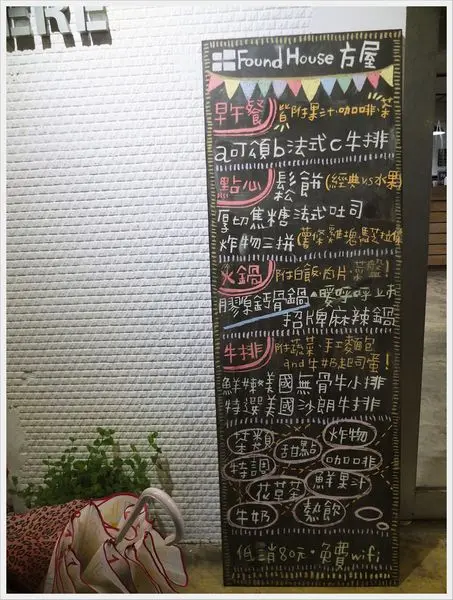 Found House 方屋
早午餐 皆附果汁·咖啡·茶
a可頌b法式c牛排
點心 鬆餅(經典vs水果)
厚切焦糖法式吐司
炸物三拼(薯條雞塊
火鍋 附白飯·肉片·菜盤!
膠原鈣骨鍋 暖呼呼上市
招牌麻辣鍋
牛排 附蔬菜·手工麵包
and牛奶起司蛋!
鮮嫩美國無骨牛小排
特選美國沙朗牛排
茶類 甜點 炸物
特調 咖啡
花草茶 鮮果汁
牛奶 熱飲
低消80元·免費wifi